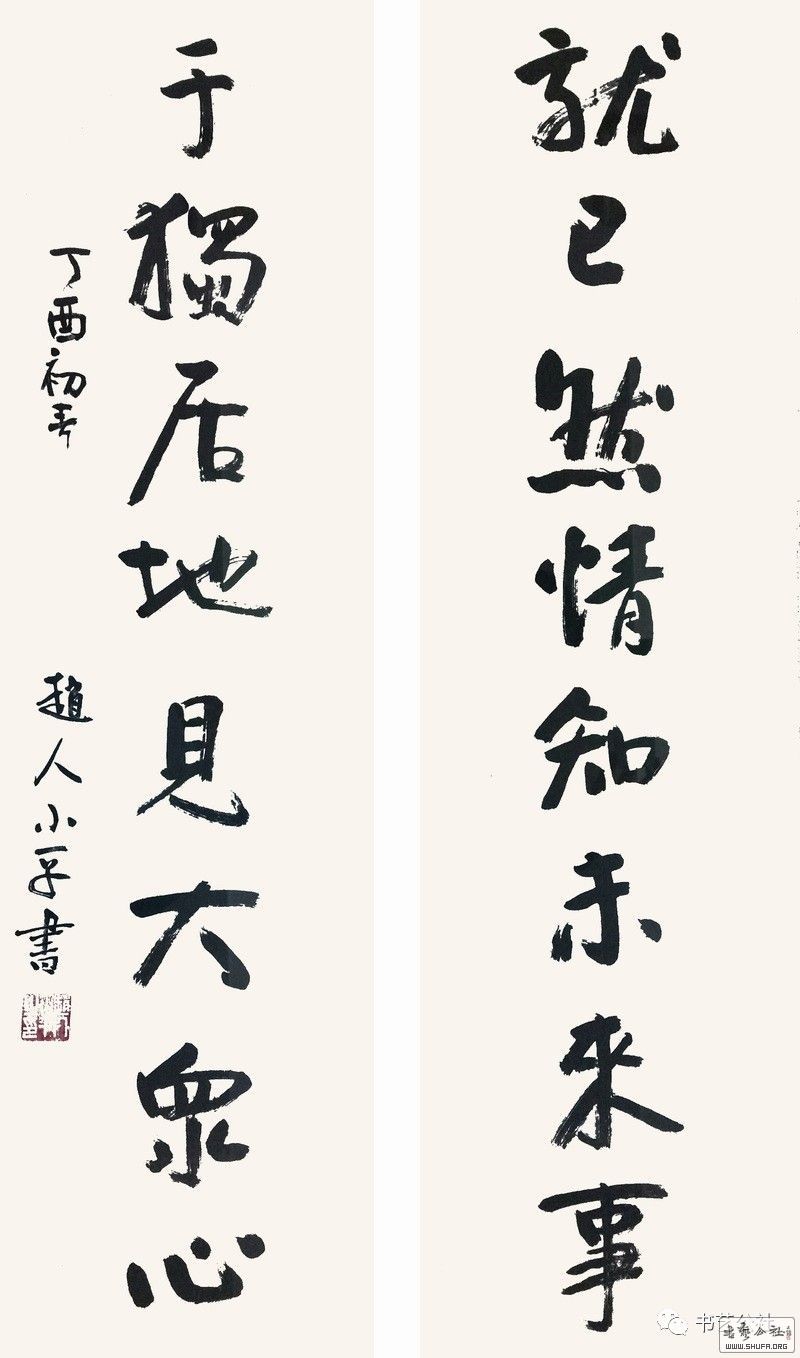 就已然情知未來事
于獨居地見大眾心
丁酉初春
趙人小平書
书艺公社
書藝公社
WWW.SHUFA.ORG